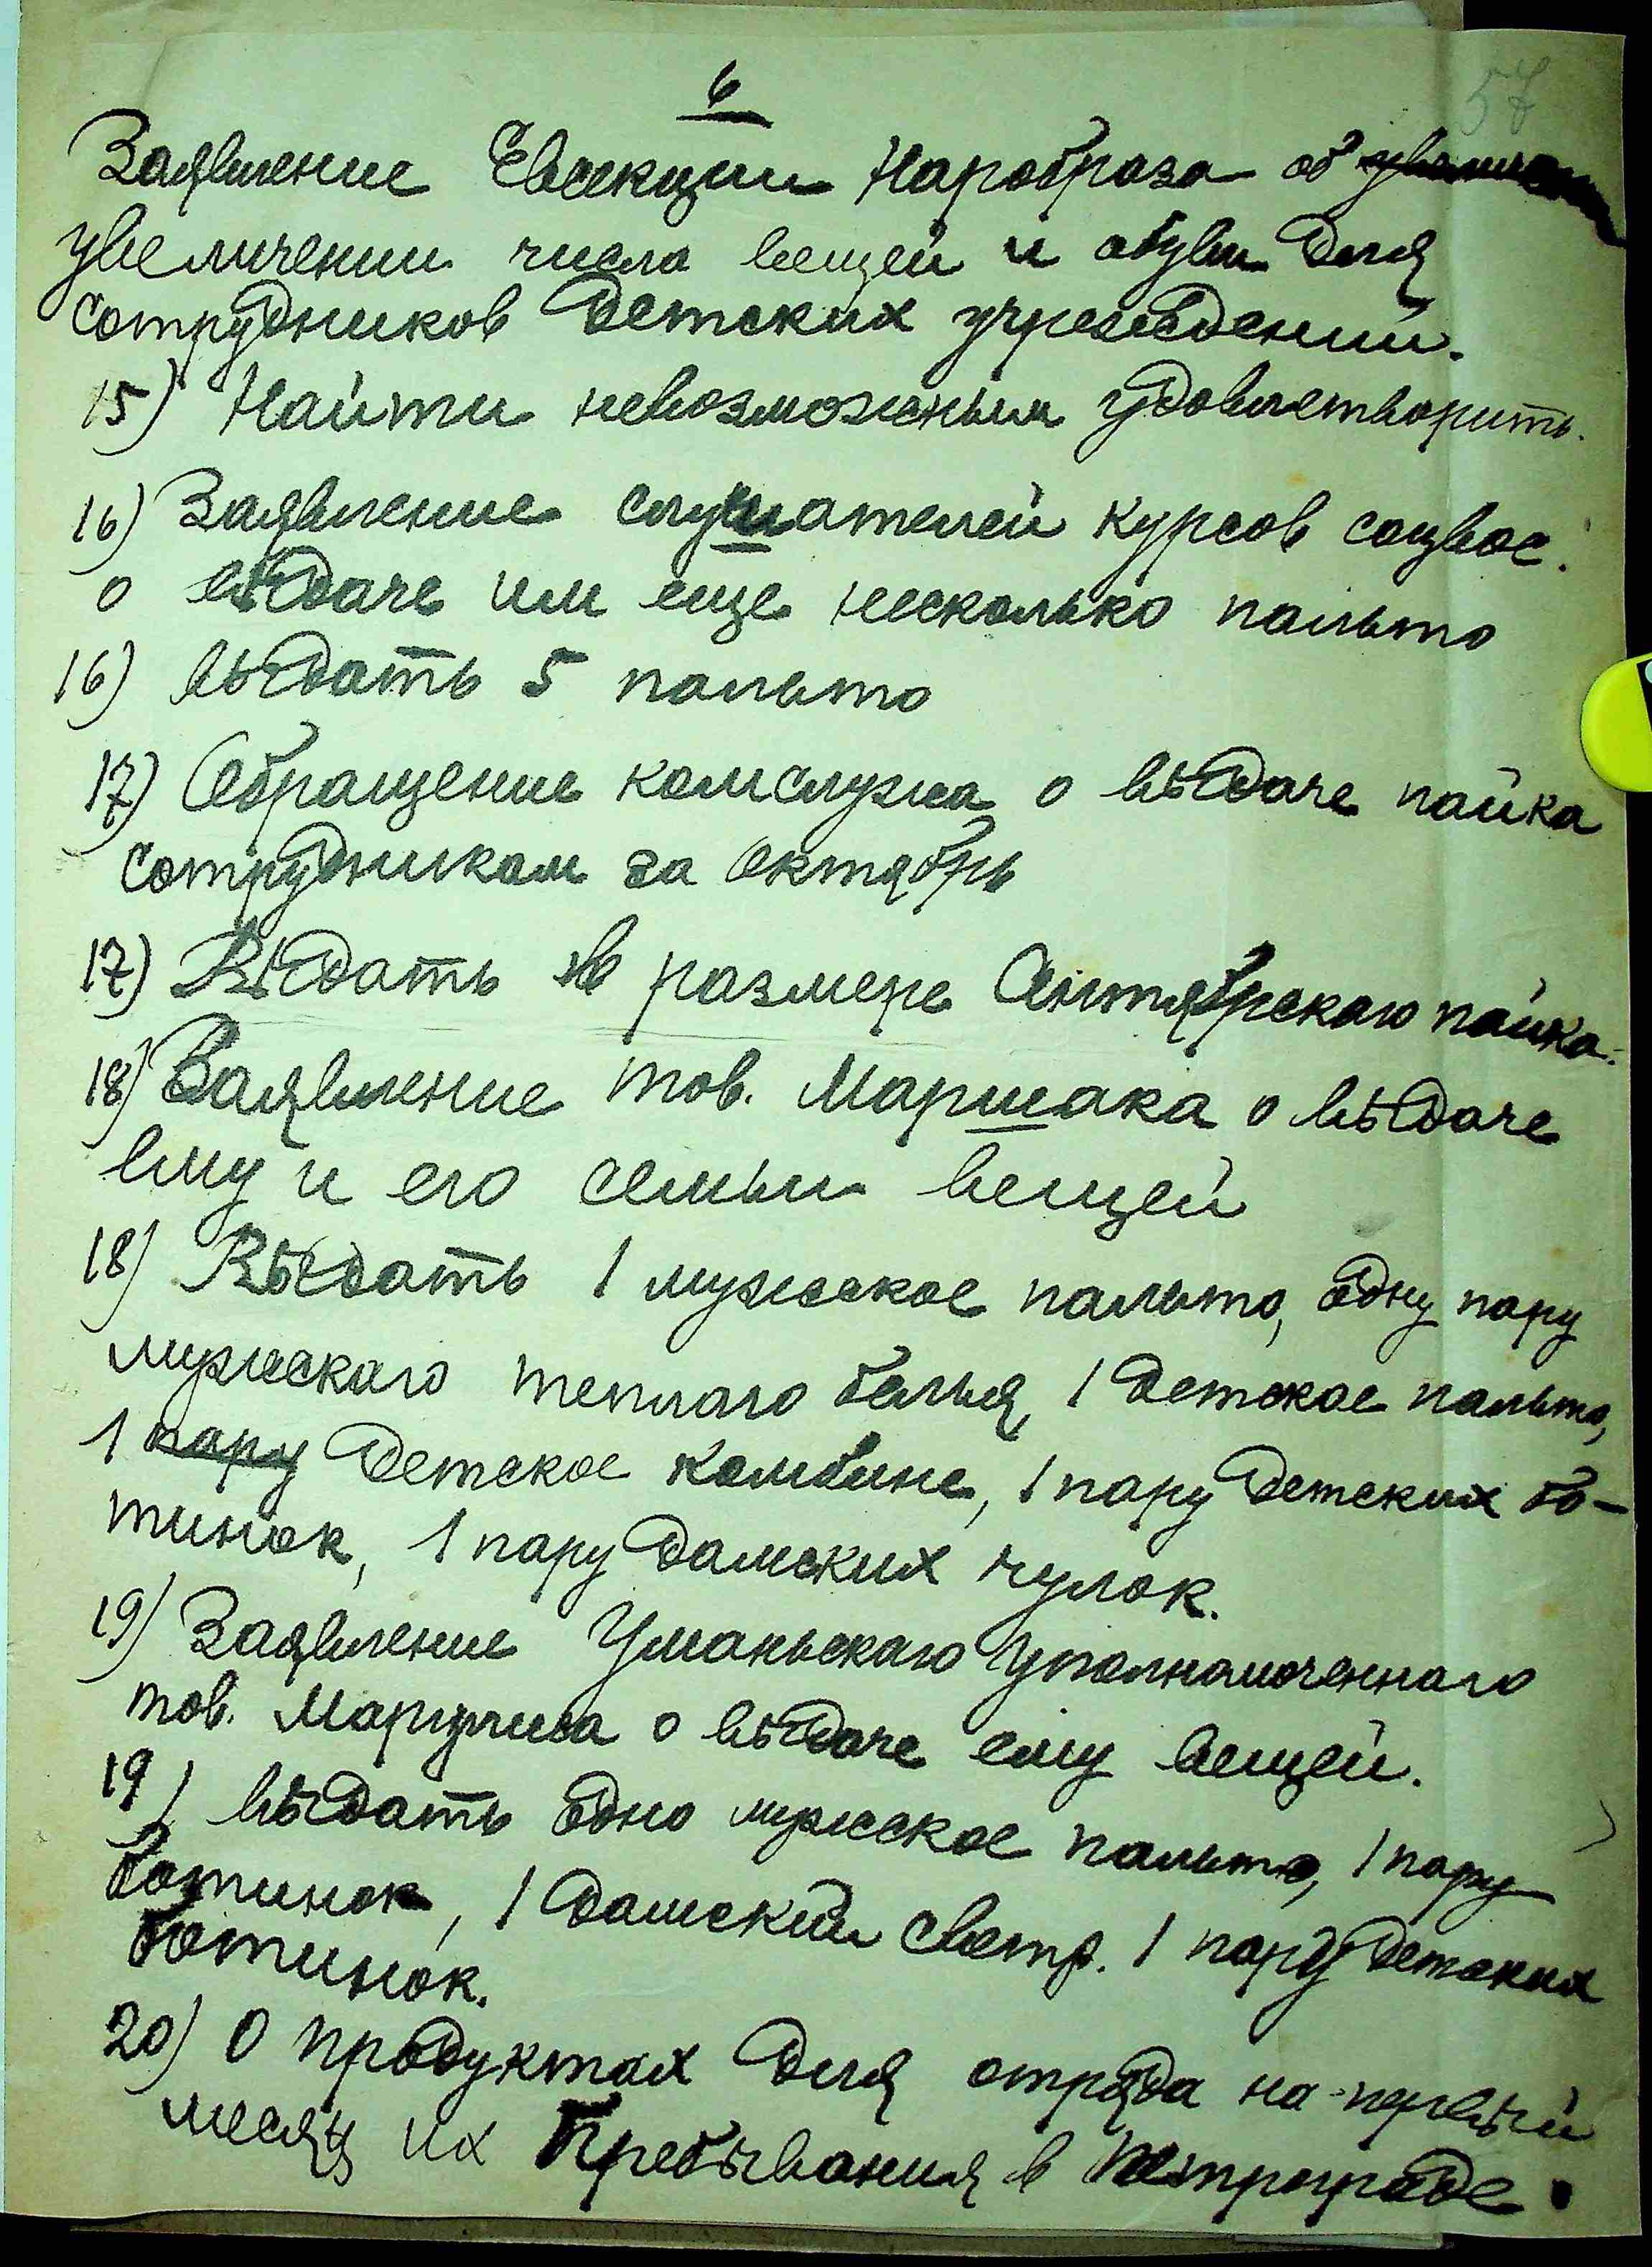 6
57
Заявление Евсекции Наробраза об
увеличении числа вещей и обуви для
сотрудников детских учреждений.
15) Найти невозможным удовлетворить.
16) Заявление слушателей курсов соцвос.
о выдаче им еще несколько пальто
16) выдать 5 пальто
17) Обращение комслужа о выдаче пайка
сотрудникам за октябрь
17) Выдать в размере Сентябрскаго пайка.
18) Заявление тов. Маршака о выдаче
ему и его семьи вещей
18) Выдать 1 мужское пальто, одну пару
мужескаго теплаго белья, 1 детское пальто,
1 пару детское комбине, 1 пару детских бо-
тинок, 1 пару дамских чулок.
19) Заявление Уманьскаго Уполномоченнаго
тов. Маргулиса о выдаче ему вещей.
19) выдать одно мужское пальто, 1 пару
ботинок, 1 дамский светр. 1 пару детских
ботинок.
20) О продуктах для отряда на первый
месяц их Пребывания в Петрограде.